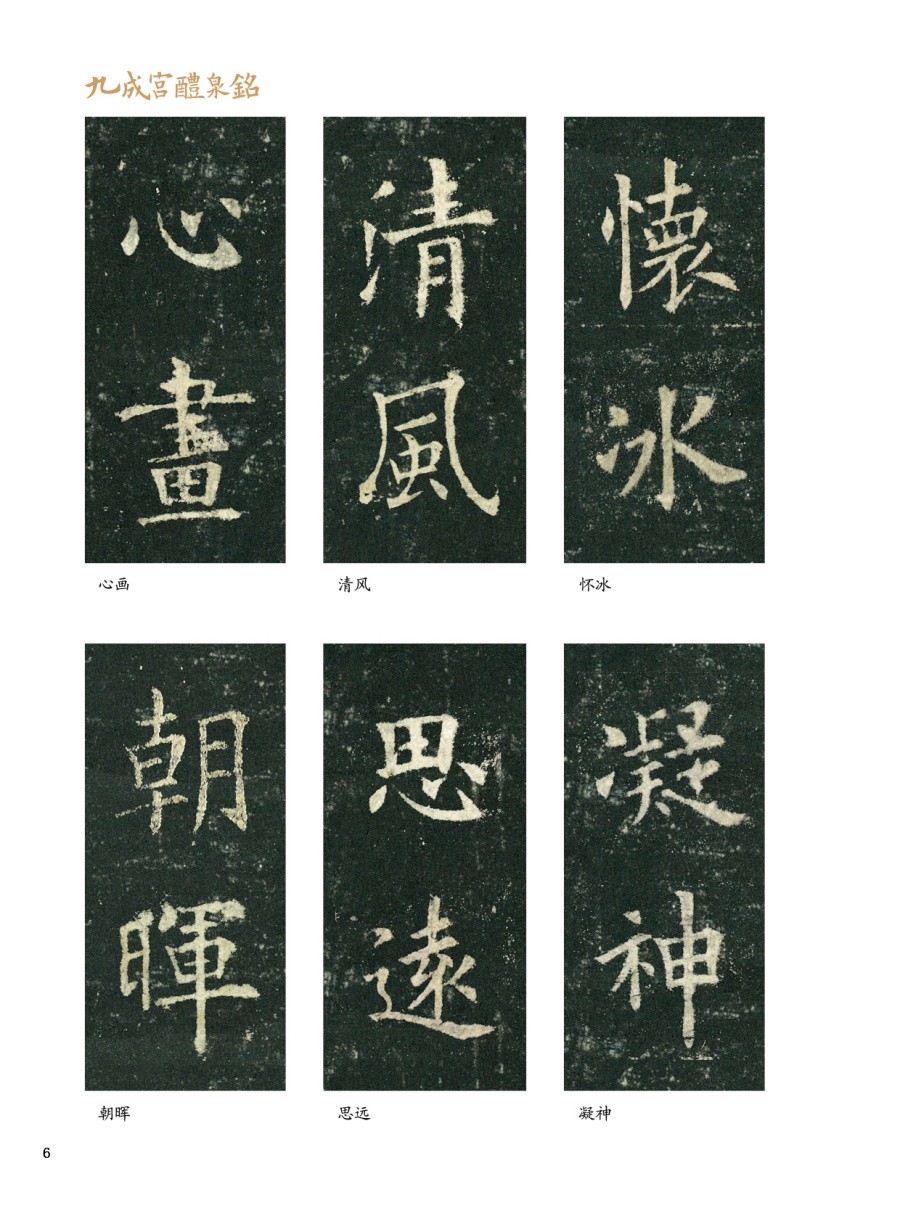 九成宮醴泉銘
心畫
心画
清風
清风
懷冰
怀冰
朝暉
朝晖
思遠
思远
凝神
凝神
6